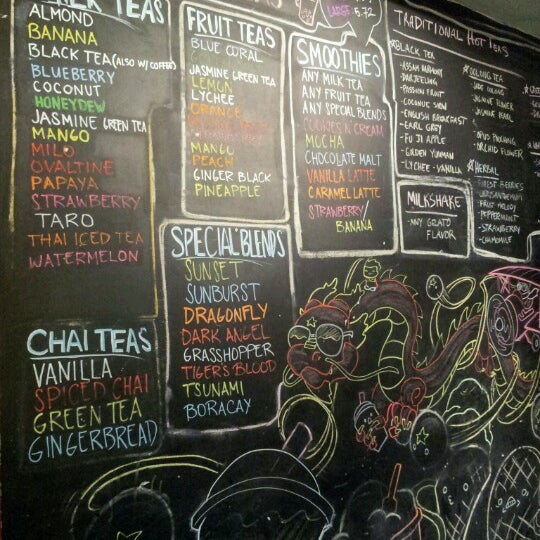 TEAS
ALMOND
BANANA
BLACK TEA (ALSO W/ COFFEE)
BLUEBERRY
COCONUT
HONEYDEW
JASMINE GREEN TEA
MANGO
MILO
OVALTINE
PAPAYA
STRAWBERRY
TARO
THAI ICED TEA
WATERMELON
CHAI TEAS
VANILLA
SPICED CHAI
GREEN TEA
GINGERBREAD
FRUIT TEAS
BLUE CORAL
JASMINE GREEN TEA
LEMON
LYCHEE
ORANGE
MANGO
PEACH
GINGER BLACK
PINEAPPLE
SPECIAL BLENDS
SUNSET
SUNBURST
DRAGONFLY
DARK ANGEL
GRASSHOPPER
TIGERS BLOOD
TSUNAMI
BORACAY
LARGE 5.72
SMOOTHIES
ANY MILK TEA
ANY FRUIT TEA
ANY SPECIAL BLENDS
COOKIES N CREAM
MOCHA
CHOCOLATE MALT
VANILLA LATTE
CARAMEL LATTE
STRAWBERRY/
BANANA
TRADITIONAL HOT TEAS
BLACK TEA
- ASSAM HARMONY
- DARJEELING
- PASSION FRUIT
- COCONUT SNOW
- ENGLISH BREAKFAST
- EARL GREY
- FUJI APPLE
- GOLDEN YUNNAN
- LYCHEE - VANILLA
OOLONG TEA
- JADE OOLONG
- JASMINE FLOWER
- JASMINE PEARL
- OPUS POUCHONG
- ORCHID FLOWER
HERBAL
- FOREST BERRIES
- FRUIT MELODY
- PEPPERMINT
- STRAWBERRY
- CHAMOMILE
MILKSHAKE
- ANY GELATO
FLAVOR